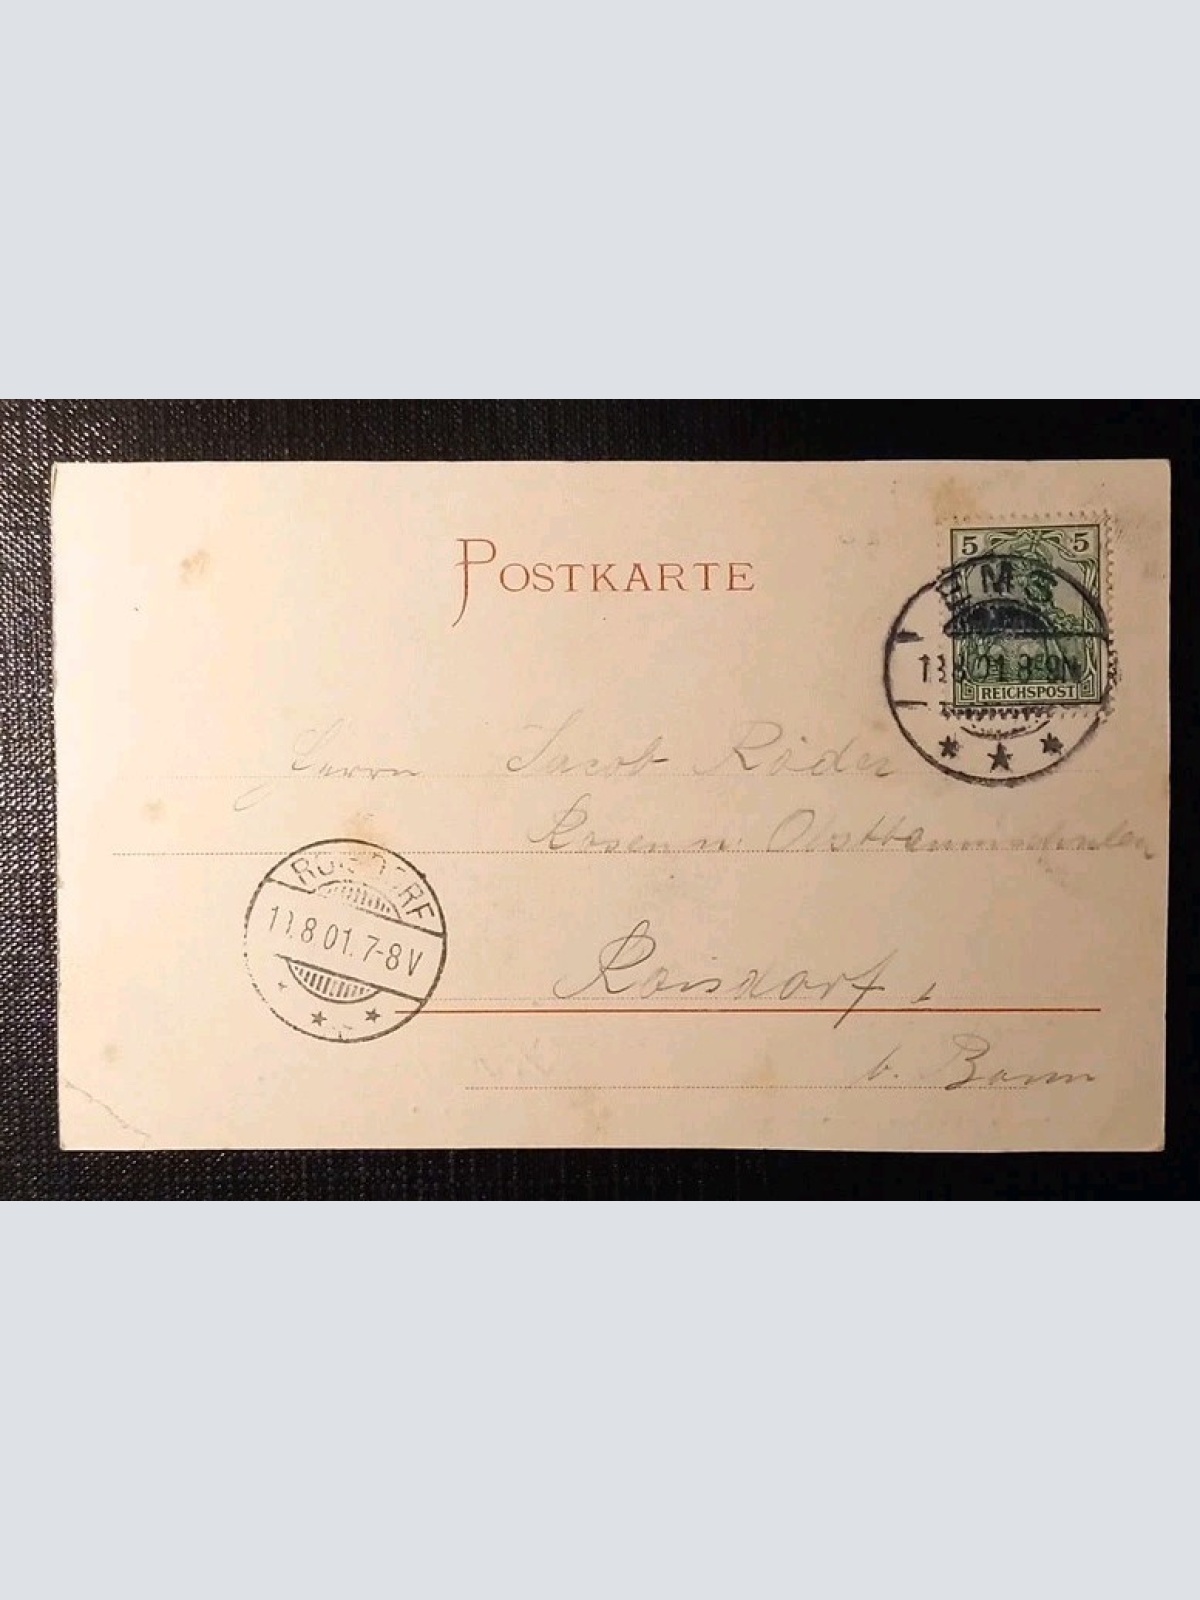 POSTKARTE
5 5
EMS
8.01.8-9N
REICHSPOST
Herrn Jacob Röder
Rosen u. Obstbaumschulen
ROISDORF
8 01. 7-8 V
Roisdorf
b. Bonn